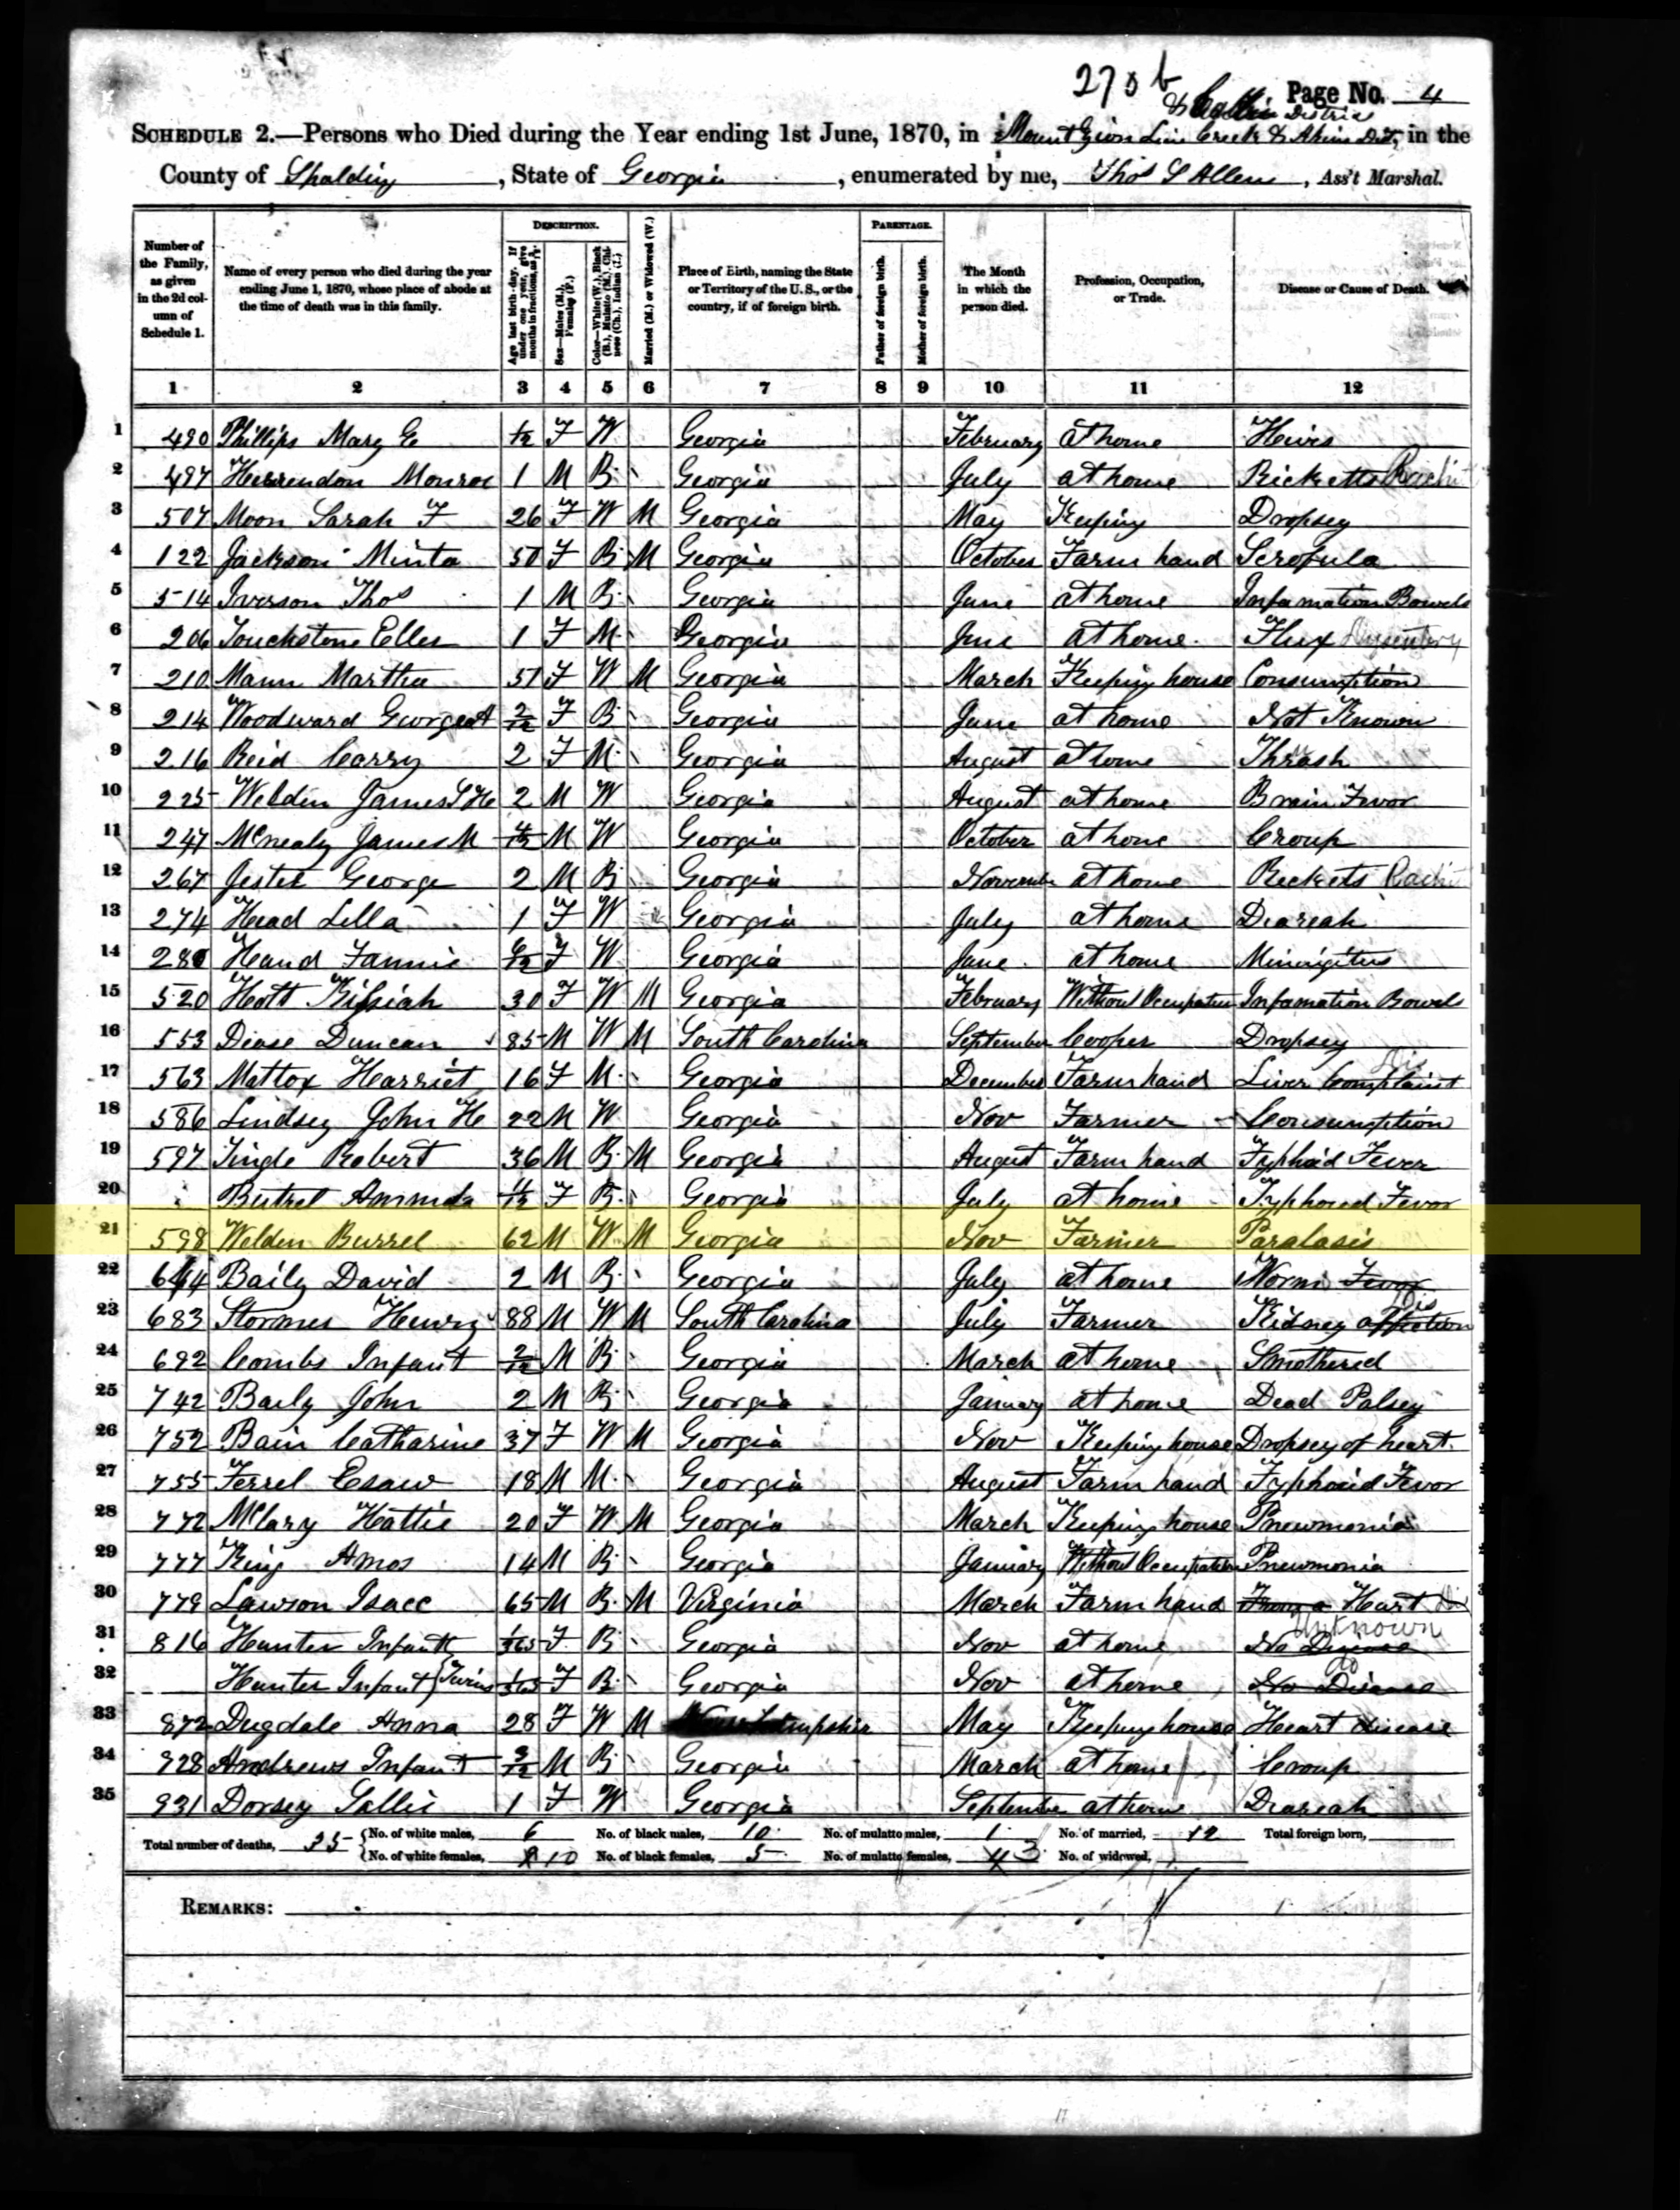 270 b
Page No. 4
& District
SCHEDULE 2.—Persons who Died during the Year ending 1st June, 1870, in Mount Zion Line Creek & Akins Dist, in the
County of Spalding, State of Georgia, enumerated by me, Thos S Allen, Ass't Marshal.
Number of the Family, as given in the 2d column of Schedule 1.
Name of every person who died during the year ending June 1, 1870, whose place of abode at the time of death was in this family.
DESCRIPTION.
Age last birth-day. If under one year, give months in fractions, as
Sex—Males (M.), Females (F.)
Color—White (W.), Black (B.), Mulatto (M.), Chinese (Ch.), Indian (I.)
Married (M.) or Widowed (W.)
Place of Birth, naming the State or Territory of the U.S., or the country, if of foreign birth.
PARENTAGE.
Father of foreign birth.
Mother of foreign birth.
The Month in which the person died.
Profession, Occupation, or Trade.
Disease or Cause of Death.
1 2 3 4 5 6 7 8 9 10 11 12
1 490 Phillips Mary E 1/12 F W Georgia February at home Hives
2 497 Herrendon Monroe 1 M B Georgia July at home Ricketts
3 507 Moon Sarah F 26 F W M Georgia May Keeping Dropsey
4 122 Jackson Minta 50 F B M Georgia October Farm hand Scrofula
5 514 Iverson Thos 1 M B Georgia June at home Infamation Bowels
6 206 Touchstone Ellen 1 F M Georgia June at home Flux Dysentery
7 210 Mann Martha 51 F W M Georgia March Keeping house Consumption
8 214 Woodward Georgea A 2/12 F B Georgia June at home Not Known
9 216 Reid Carry 2 F M Georgia August at home Thrash
10 225 Weldin James S He 2 M W Georgia August at home Brain Fevor
11 247 McNealy James M 4/12 M W Georgia October at home Croup
12 267 Jester George 2 M B Georgia November at home Reckets
13 274 Head Lella 1 F W Georgia July at home Diareah
14 280 Hand Fannie 6/12 F W Georgia June at home Minigitus
15 520 Hott Kisiah 30 F W M Georgia February Without Occupation Infamation Bowels
16 553 Dease Duncan 85 M W M South Carolina September Cooper Dropsey
17 563 Mattox Harriet 16 F M Georgia December Farm hand Liver Complaint Dis
18 586 Lindsey John H 22 M W Georgia Nov Farmer Consumption
19 597 Tingle Robert 36 M B M Georgia August Farm hand Typhoid Fever
20 Butrel Amanda 11/12 F B Georgia July at home Typhoid Fevor
21 598 Welden Burrel 62 M W M Georgia Nov Farmer Paralasis
22 664 Baily David 2 M B Georgia July at home Worm Fevor
23 683 Stormes Henry 88 M W M South Carolina July Farmer Kidney affection Dis
24 692 Combs Infant 2/12 M B Georgia March at home Smothered
25 742 Baily John 2 M B Georgia January at home Dead Palsey
26 752 Bain Catharine 37 F W M Georgia Nov Keeping house Dropsey of heart
27 755 Ferrel Esaw 18 M M Georgia August Farm hand Typhoid Fevor
28 772 McLary Hattie 20 F W M Georgia March Keeping house Pneumonia
29 777 King Amos 14 M B Georgia January Without Occupation Pneumonia
30 779 Lawson Isacc 65 M B M Virginia March Farm hand From a Heart Dis
31 816 Hunter Infant 1/365 F B Georgia Nov at home No Disease Unknown
32 Hunter Infant {Twins 1/365 F B Georgia Nov at home No Disease do
33 872 Dugdale Anna 28 F W M New Hampshire May Keeping house Heart disease
34 928 Andrews Infant 3/12 M B Georgia March at home Croup
35 931 Dorsey Sallie 1 F W Georgia September at home Diareah
Total number of deaths, 35 No. of white males, 6 No. of black males, 10 No. of mulatto males, 1 No. of married, 12 Total foreign born,
No. of white females, 10 No. of black females, 5 No. of mulatto females, 4 3 No. of widowed,
REMARKS: